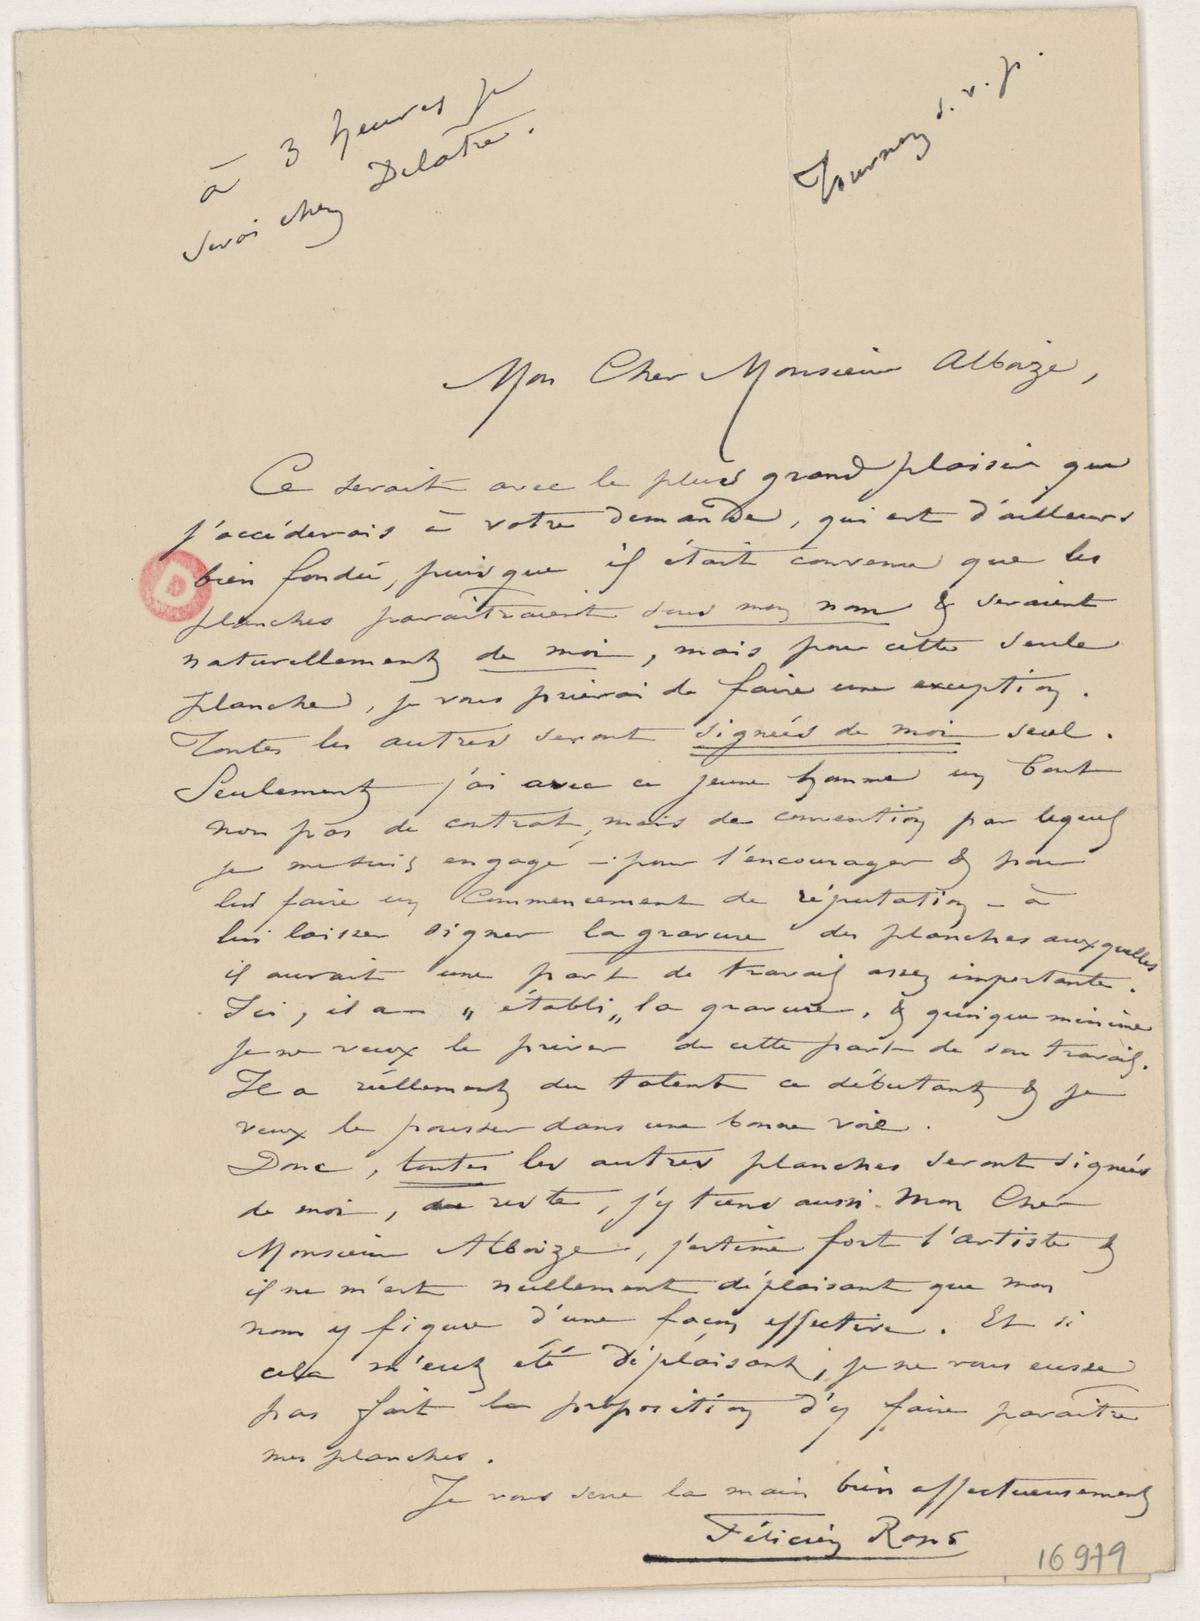 à 3 heures je
serai chez Delatre.
Tournez s. v. p.
Mon Cher Monsieur Alboize,
Ce serait avec le plus grand plaisir que
j'accéderais à votre demande, qui est d'ailleurs
bien fondée, puisque il était convenu que les
planches paraîtraient sous mon nom & seraient
naturellement de moi, mais pour cette seule
planche, je vous prierai de faire une exception.
Toutes les autres seront signées de moi seul.
Seulement j'ai avec ce jeune homme un bout
non pas de contrat, mais de convention par lequel
je me suis engagé – pour l'encourager & pour
lui faire un commencement de réputation – à
lui laisser signer la gravure des planches auxquelles
il aurait une part de travail assez importante.
Ici, il a „ établi „ la gravure, & quoique minime
je ne veux le priver de cette part de son travail.
Il a réellement du talent ce débutant & je
veux le pousser dans une bonne voie.
Donc, toutes les autres planches seront signées
de moi, du reste, j'y tiens aussi. Mon Cher
Monsieur Alboize, j'estime fort l'artiste &
il ne m'est nullement déplaisant que mon
nom y figure d'une façon effective. Et si
cela m'eut été déplaisant, je ne vous eusse
pas fait la proposition d'y faire paraître
mes planches.
Je vous serre la main bien affectueusement
Félicien Rops
16979
D